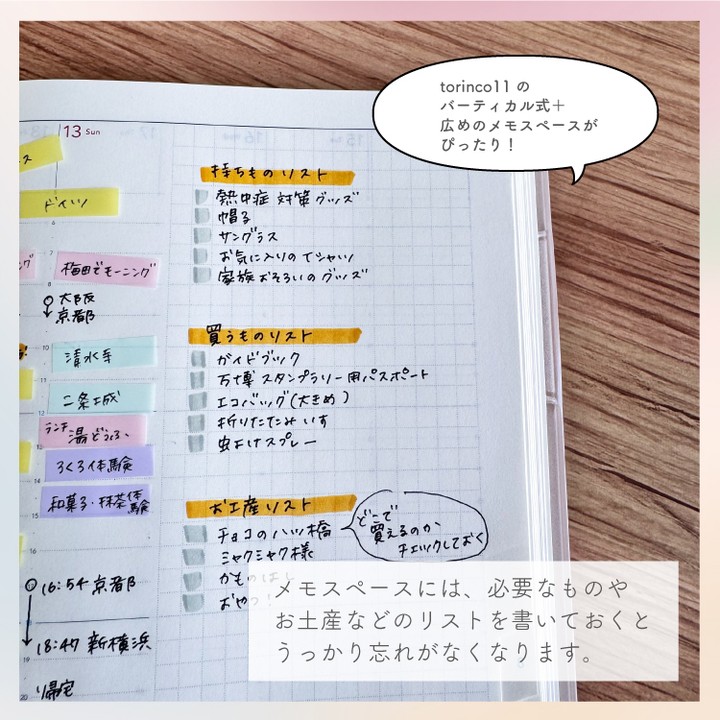 torinco11 の
バーティカル式＋
広めのメモスペースが
ぴったり！
13 Sun
ドイツ
梅田でモーニング
大阪
京都
清水寺
二条城
ランチ 湯どうふ
ろくろ体験
和菓子・抹茶体験
16:54 京都
18:47 新横浜
帰宅
持ちものリスト
熱中症 対策グッズ
帽子
サングラス
お気に入りのTシャツ
家族おそろいのグッズ
買うものリスト
ガイドブック
万博 スタンプラリー用パスポート
エコバッグ(大きめ)
折りたたみいす
虫よけスプレー
お土産リスト
チョコの八ツ橋
どこで
買えるのか
チェックしておく
ミャクミャク様
かものはし
おやつ!
メモスペースには、必要なものや
お土産などのリストを書いておくと
うっかり忘れがなくなります。